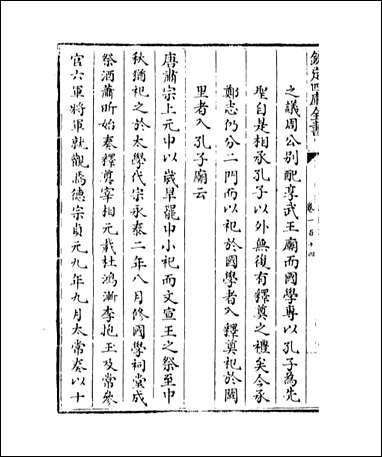 欽定四庫全書
卷一百十四
之議周公别配享武王廟而國學専以孔子為先
聖自是相承孔子以外無復有釋奠之禮矣今承
鄭志仍分二門而以祀於國學者入釋奠祀於闕
里者入孔子廟云
唐肅宗上元中以歲旱罷中小祀而文宣王之祭至中
秋猶祀之於太學代宗永泰二年八月修國學祠堂成
祭酒蕭昕始奏釋奠宰相元載杜鴻漸李抱玉及常參
官六軍將軍就觀焉德宗貞元九年九月太常奏以十